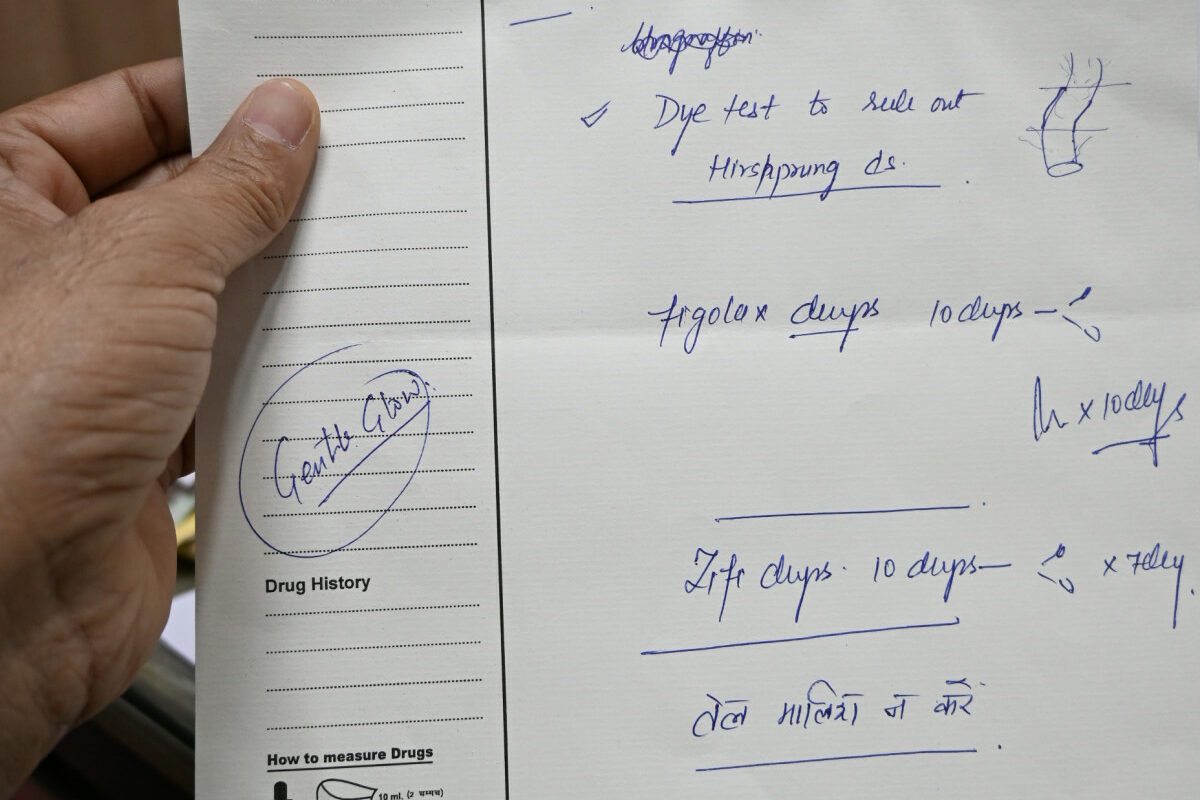 Dye test to rule out
Hirshprung ds.
drops 10 drops –
x 10 days
Zifi drops. 10 drops – x 7 day.
तेल मालिश न करें
Gentle Glow.
Drug History
How to measure Drugs
10 ml. (2 चम्मच)